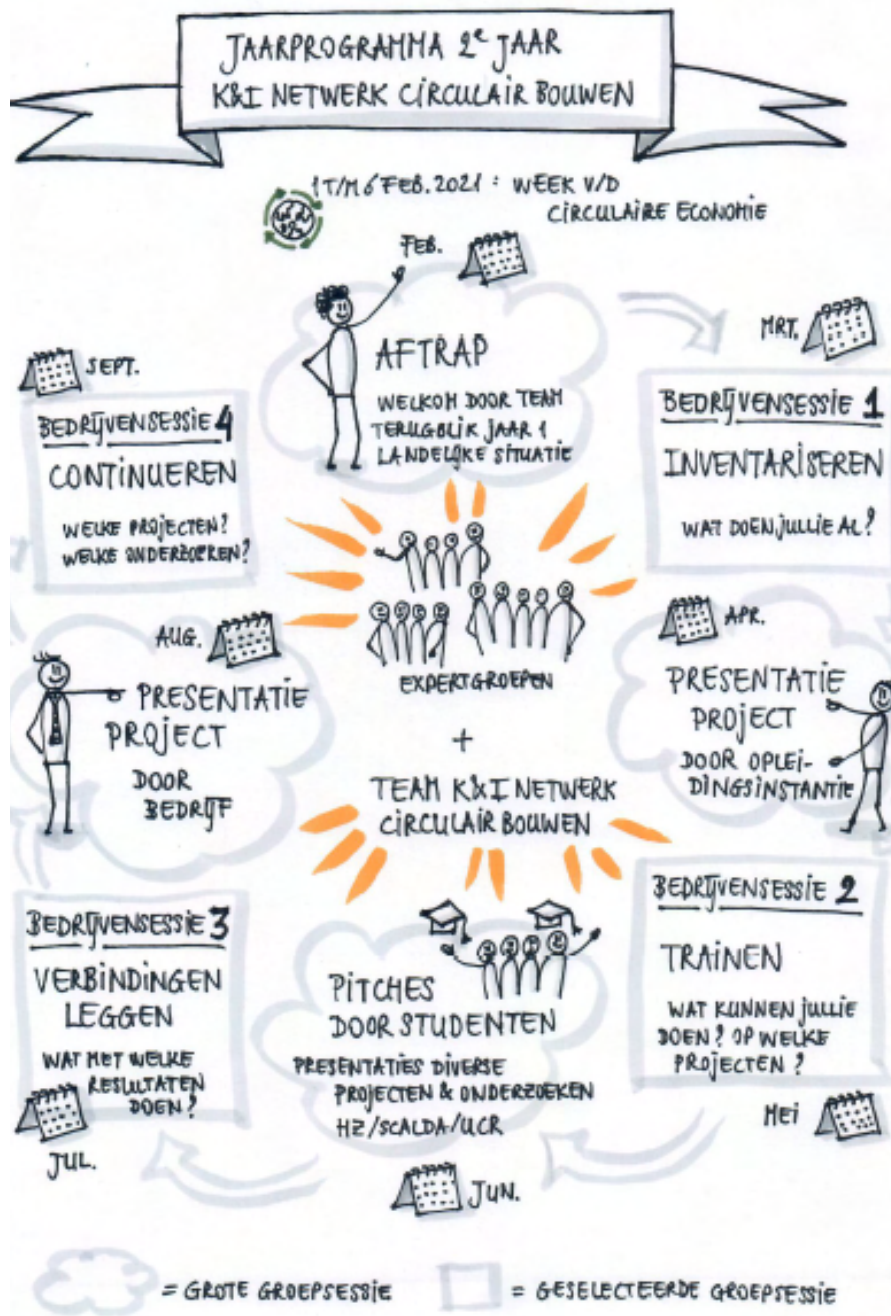 JAARPROGRAMMA 2e JAAR
K&I NETWERK CIRCULAIR BOUWEN
1 T/M 6 FEB. 2021 : WEEK V/D
CIRCULAIRE ECONOMIE
FEB.
AFTRAP
WELKOM DOOR TEAM
TERUGBLIK JAAR 1
LANDELIJKE SITUATIE
MRT.
BEDRIJVENSESSIE 1
INVENTARISEREN
WAT DOEN JULLIE AL?
APR.
PRESENTATIE
PROJECT
DOOR OPLEI-
DINGSINSTANTIE
BEDRIJVENSESSIE 2
TRAINEN
WAT KUNNEN JULLIE
DOEN? OP WELKE
PROJECTEN?
MEI
PITCHES
DOOR STUDENTEN
PRESENTATIES DIVERSE
PROJECTEN & ONDERZOEKEN
HZ/SCALDA/UCR
JUN.
BEDRIJVENSESSIE 3
VERBINDINGEN
LEGGEN
WAT MET WELKE
RESULTATEN
DOEN?
JUL.
AUG.
PRESENTATIE
PROJECT
DOOR
BEDRIJF
SEPT.
BEDRIJVENSESSIE 4
CONTINUEREN
WELKE PROJECTEN?
WELKE ONDERZOEKEN?
EXPERTGROEPEN
+
TEAM K&I NETWERK
CIRCULAIR BOUWEN
= GROTE GROEPSESSIE
= GESELECTEERDE GROEPSESSIE